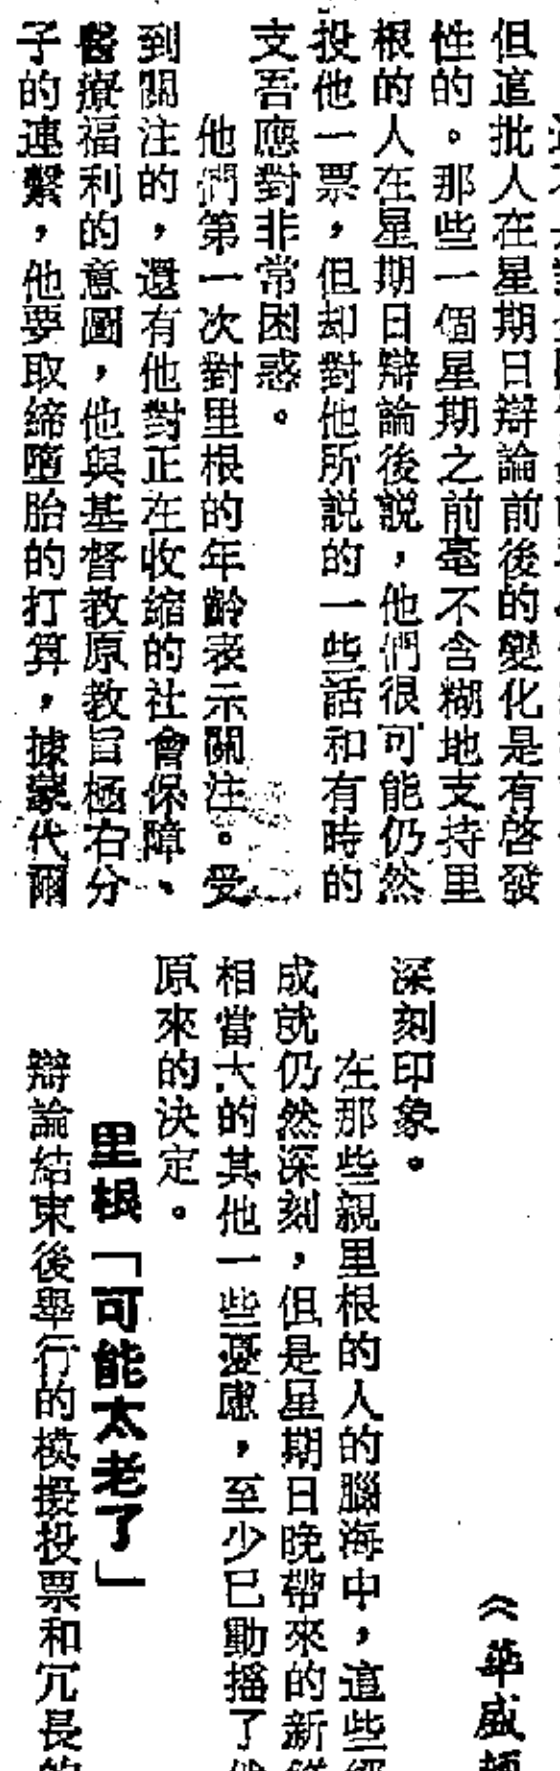 但這批人在星期日辯論前後的變化是有啓發
性的。那些一個星期之前毫不含糊地支持里
根的人在星期日辯論後説，他們很可能仍然
投他一票，但却對他所説的一些話和有時的
支吾應對非常困惑。
他們第一次對里根的年齡表示關注。受
到關注的，還有他對正在收縮的社會保障、
醫療福利的意圖，他與基督教原教旨極右分
子的連繫，他要取締墮胎的打算，據蒙代爾
《華盛頓
深刻印象。
在那些親里根的人的腦海中，這些經
成就仍然深刻，但是星期日晚帶來的新
相當大的其他一些憂慮，至少已動搖了
原來的決定。
里根「可能太老了」
辯論結束後舉行的模擬投票和冗長的